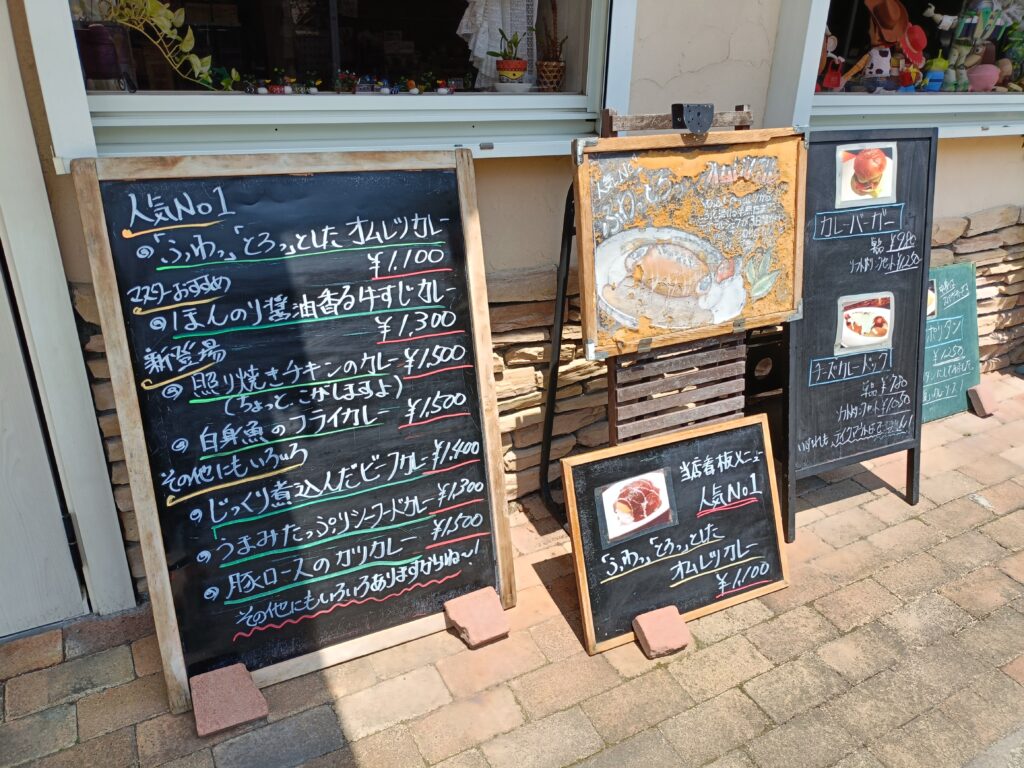 人気No1
「ふわっ」「とろっ」とした オムレツカレー
¥1,100
マスターおすすめ
ほんのり醤油香る牛すじカレー
¥1,300
新登場
照り焼きチキンのカレー ¥1,500
(ちょっと、こがしますよ)
白身魚のフライカレー ¥1,500
その他にもいろいろ
じっくり煮込んだビーフカレー ¥1,400
うまみたっぷりシーフードカレー ¥1,300
豚ロースのカツカレー ¥1,500
その他にもいろいろありますからね〜!
人気No1
オムレツカレー
当店看板メニュー
人気No1
「ふわっ」「とろっ」とした
オムレツカレー
¥1,100
カレーバーガー
単品 ¥980
¥1,250
チーズカレードック
単品 ¥780
¥1,050
ポリタン
¥1,250